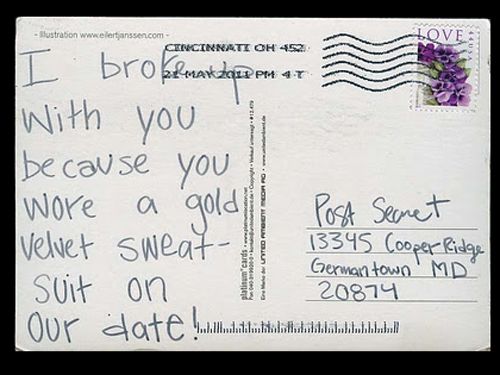 - Illustration www.eilertjanssen.com -
CINCINNATI OH 452
21 MAY 2011 PM 4 T
LOVE
44 USA
I broke up
With you
because you
wore a gold
velvet sweat-
suit on
our date!
platinum cards · www.platinumvisitation.net
UNITED AMBIENT MEDIA AG · www.unitedambient.de
Post Secret
13345 Cooper Ridge
Germantown MD
20874